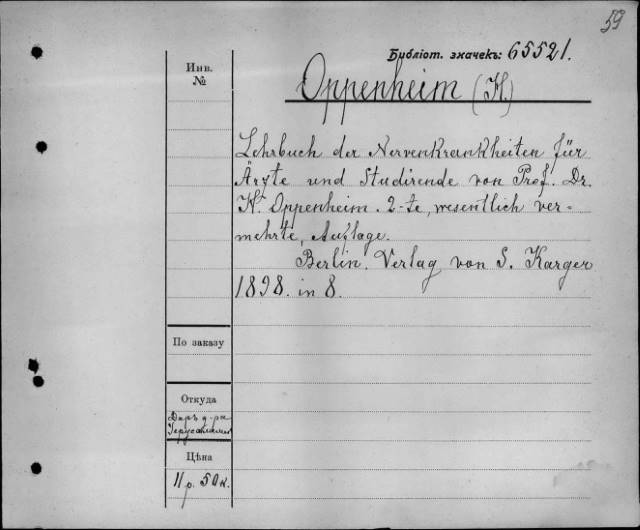 59
Библіот. значекъ: 65521.
Инв. №
Oppenheim (H.)
Lehrbuch der Nervenkrankheiten für
Ärzte und Studirende von Prof. Dr.
H. Oppenheim. 2-te, wesentlich ver=
mehrte, Auflage.
Berlin. Verlag von S. Karger
1898. in 8.
По заказу
Откуда
Даръ д-ра
Цѣна
11 р. 50 к.